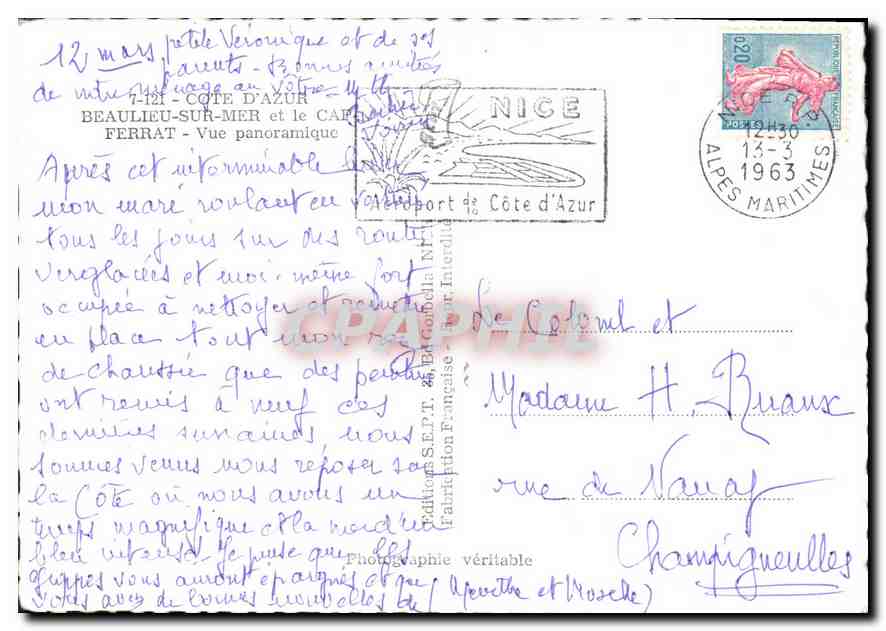 12 mars petite Véronique et de ses
parents - Bonnes amitiés
de notre ménage au vôtre -
7-121 - COTE D'AZUR
BEAULIEU-SUR-MER et le CAP
FERRAT - Vue panoramique
Après cet interminable hiver
mon mari roulant en voiture
tous les jours sur des routes
verglacées et moi-même fort
occupée à nettoyer et remettre
en place tout mon rez
de chaussée que des peintres
ont remis à neuf ces
dernières semaines, nous
sommes venus nous reposer sur
la Côte où nous avons un
temps magnifique et la mer d'un
bleu intense. Je pense que les
grippes vous auront épargnés et que
vous avez de bonnes nouvelles de
NICE
Aéroport de la Côte d'Azur
REPUBLIQUE FRANÇAISE
0,20
POSTES
NICE R.P.
12H30
13-3
1963
ALPES MARITIMES
Editions S.E.P.T. 25, Bd Gorbella
Fabrication Française - Interdite
CPAPHIL
Photographie véritable
Le Colonel et
Madame H.
rue de
Champigneulles
(Meurthe et Moselle)